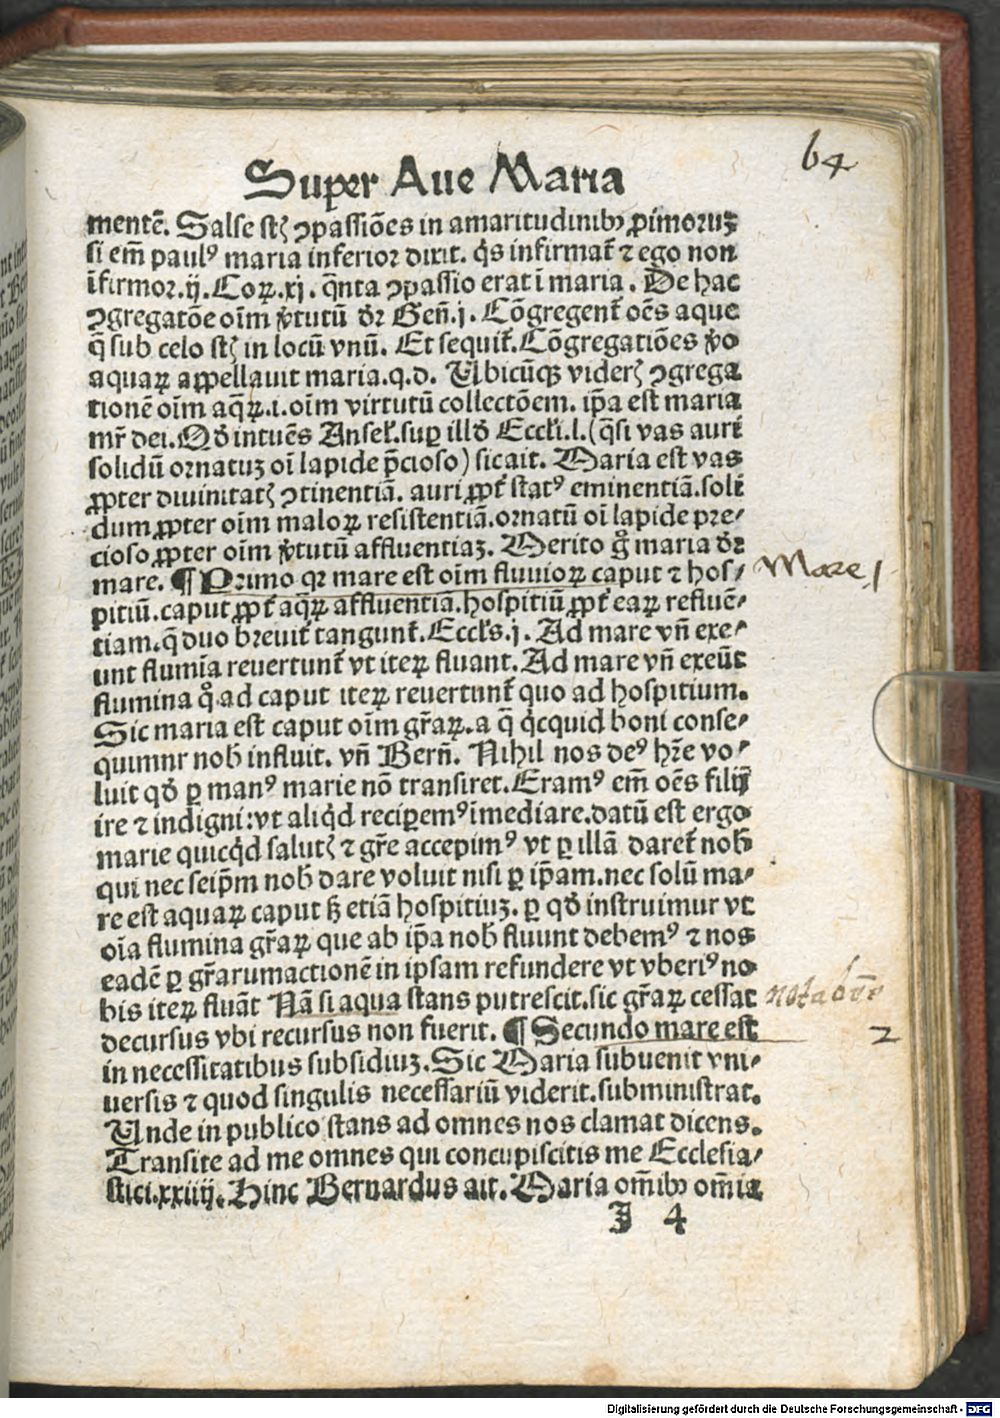 64
Super Aue Maria
mentē. Salse stꝫ ꝯpassiōes in amaritudinibꝰ ꝓximoruꝫ
si em̄ paulꝰ maria inferior dixit. q̇s infirmat᷑ ⁊ ego non
īfirmor.ij. Coꝝ.xj. qͣnta ꝯpassio erat ī maria. De hac
ꝯgregatōe oīm v̓tutū dꝛ Geñ.j. Cōgregent᷑ oēs aque
q̄ sub celo stꝫ in locū vnū. Et sequit᷑. Cōgregatiōes v̓o
aquaꝝ appellauit maria.q.d. Ubicūqꝫ viderꝭ ꝯgrega
tionē oīm aq̄ꝝ.i.oīm virtutū collectōem. ip̄a est maria
mr̄ dei. Qd̓ intuēs Ansel̓.suꝑ illd̓ Eccl̓i.l.(qͣsi vas auri
solidū ornatuꝫ oī lapide p̄cioso) sic ait. Maria est vas
ꝓpter diuinitatꝭ ꝯtinentiā. auri ꝓpt̓ statꝰ eminentiā.soli
dum ꝓpter oīm maloꝝ resistentiā.ornatū oī lapide pre⸗
cioso ꝓpter oīm v̓tutū affluentiaꝫ. Merito gͦ maria dꝛ
mare. ¶ Primo qꝛ mare est oīm fluuioꝝ caput ⁊ hos⸗
Mare 1
pitiū.caput ꝓpt̓ aq̄ꝝ affluentiā.hospitiū ꝓpt̓ eaꝝ refluē⸗
tiam.q̄ duo breuit̓ tangunt᷑. Eccl̓s.j. Ad mare vn̄ exe⸗
unt flumīa reuertunt᷑ vt iteꝝ fluant. Ad mare vn̄ exeūt
flumina qͦ ad caput iteꝝ reuertunt᷑ quo ad hospitium.
Sic maria est caput oīm gr̄aꝝ.a q̄ q̇cquid boni conse⸗
quimnr nob̓ influit. vn̄ Bern̄. Nihil nos deꝰ hr̄e vo⸗
luit qd̓ ꝑ manꝰ marie nō transiret. Eramꝰ em̄ oēs filij
ire ⁊ indigni:vt aliq̇d reciꝑemꝰ īmediate.datū est ergo
marie quicq̇d salutꝭ ⁊ gr̄e accepimꝰ vt ꝑ illā daret᷑ nob̓
qui nec seip̄m nob̓ dare voluit nisi ꝑ ip̄am.nec solū ma⸗
re est aquaꝝ caput sꝫ etiā hospitiuꝫ. ꝑ qd̓ instruimur vt
oīa flumina gr̄aꝝ que ab ip̄a nob̓ fluunt debemꝰ ⁊ nos
eadē ꝑ gr̄arumactionē in ipsam refundere vt vberiꝰ no
bis iteꝝ fluāt Nā si aqua stans putrescit.sic gr̄aꝝ cessat
nota bene
decursus vbi recursus non fuerit. ¶ Secundo mare est
2
in necessitatibus subsidiuꝫ. Sic Maria subuenit vni⸗
uersis ⁊ quod singulis necessariū viderit.subministrat.
Unde in publico stans ad omnes nos clamat dicens.
Transite ad me omnes qui concupiscitis me Ecclesia⸗
stici.xxiiij. Hinc Bernardus ait. Maria om̄ibꝰ om̄ia
J 4
Digitalisierung gefördert durch die Deutsche Forschungsgemeinschaft - DFG